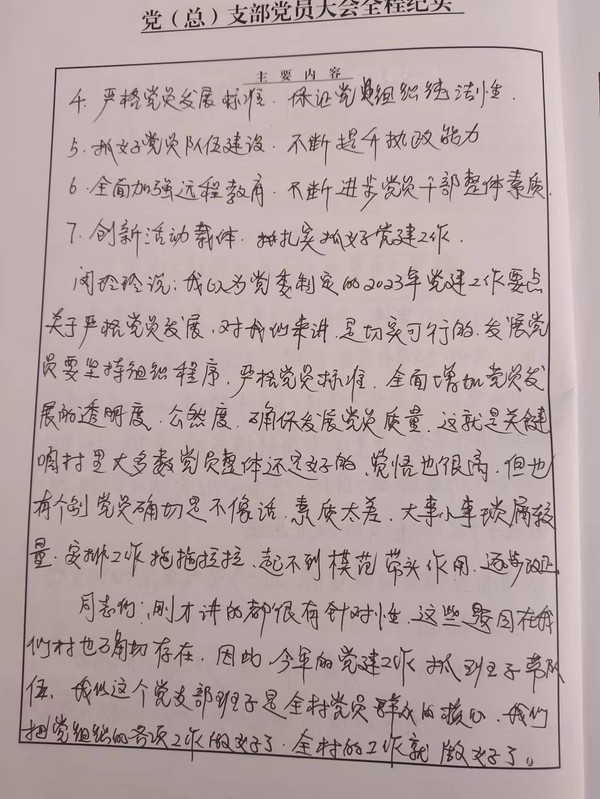 党（总）支部党员大会全程纪实
主要内容
4. 严格党员发展标准、保证党员组织纯洁性.
5. 抓好党员队伍建设、不断提升执政能力
6. 全面加强远程教育、不断进步党员干部整体素质.
7. 创新活动载体、扎实抓好党建工作.
闵玲玲说：我认为党委制定的2023年党建工作要点
关于严格党员发展、对我们来讲、是切实可行的、发展党
员要坚持组织程序、严格党员标准、全面增加党员发
展的透明度、公然度、确保发展党员质量、这就是关键
咱村里大多数党员整体还是好的、党悟也很高、但也
有个别党员确切是不像话、素质太差、大事小事 较
量、安排工作拖拖拉拉、起不到模范带头作用、还
同志们：刚才讲的都很有针对性、这些 在我
们村也确切存在、因此、今年的党建工作抓班子带队
伍、我们这个党支部班子是全村党员群众的核心、我们
把党组织的各项工作做好了、全村的工作就做好了。